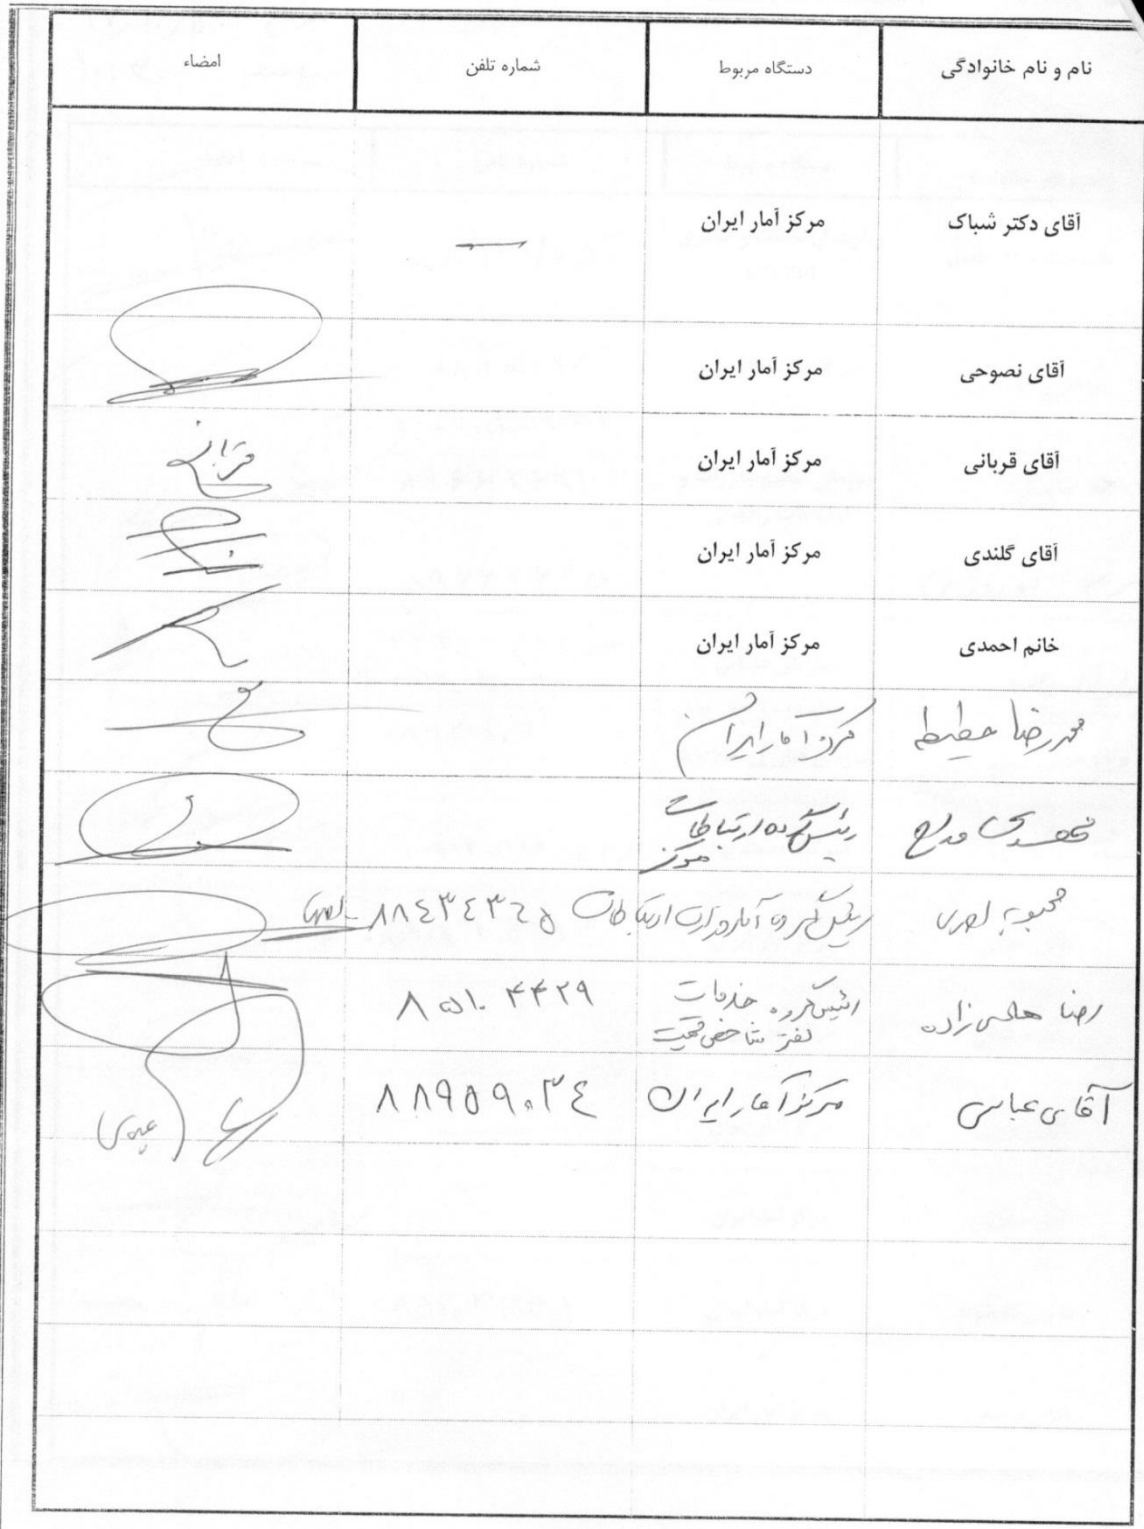 نام و نام خانوادگی دستگاه مربوط شماره تلفن امضاء
آقای دکتر شباک مرکز آمار ایران —
آقای نصوحی مرکز آمار ایران
آقای قربانی مرکز آمار ایران قربانی
آقای گلندی مرکز آمار ایران
خانم احمدی مرکز آمار ایران
محمدرضا مرکز آمار ایران
رئیس گروه ارتباطات
مرکز
محبوبه رئیس گروه آمار وزارت ارتباطات
رضا رئیس گروه خدمات ۸۵۱۰۴۴۲۹
دفتر شاخص قیمت
آقای عباسی مرکز آمار ایران ۸۸۹۵۹۰۳۴